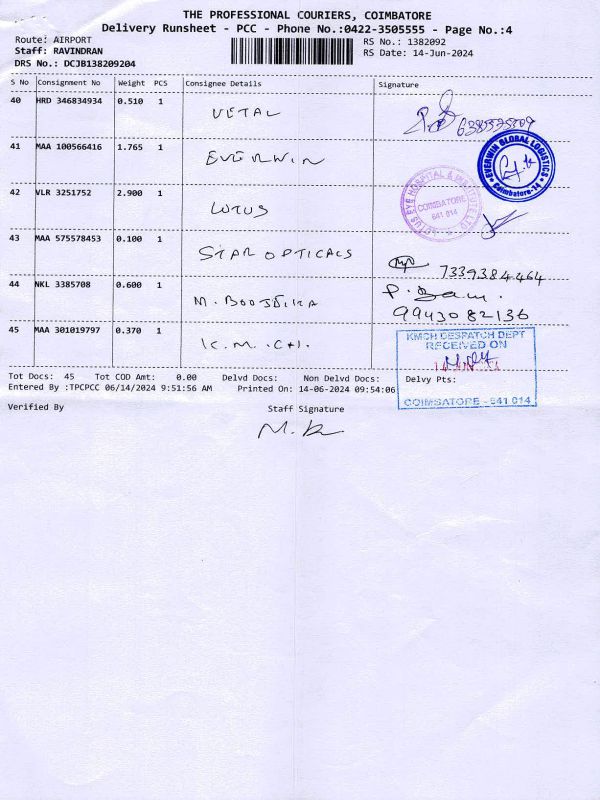 THE PROFESSIONAL COURIERS, COIMBATORE
Delivery Runsheet - PCC - Phone No.:0422-3505555 - Page No.:4
Route: AIRPORT
RS No.: 1382092
Staff: RAVINDRAN
RS Date: 14-Jun-2024
DRS No.: DCJB138209204
S No Consignment No Weight PCS Consignee Details Signature
40 HRD 346834934 0.510 1 VETAL
41 MAA 100566416 1.765 1 EVERWIN
EVERWIN GLOBAL LOGISTICS
Coimbatore-14
42 VLR 3251752 2.900 1 LOTUS
LOTUS EYE HOSPITAL & INSTITUTE LTD
COIMBATORE
641 014
43 MAA 575578453 0.100 1 STAR OPTICALS
7339384464
44 NKL 3385708 0.600 1
9943082136
45 MAA 301019797 0.370 1 K.M.CH.
KMCH DESPATCH DEPT
RECEIVED ON
COIMBATORE - 641 014
Tot Docs: 45 Tot COD Amt: 0.00 Delvd Docs: Non Delvd Docs: Delvy Pts:
Entered By :TPCPCC 06/14/2024 9:51:56 AM Printed On: 14-06-2024 09:54:06
Verified By Staff Signature